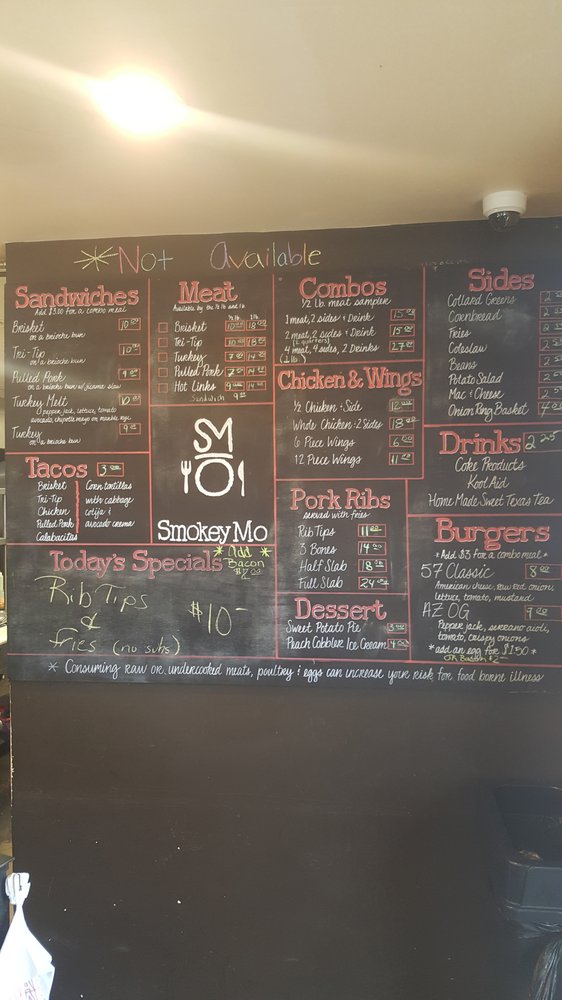 *Not Available
Sandwiches
Add $3.00 for a combo meal
Brisket 10.00
on a brioche bun
Tri-Tip 10.00
on a brioche bun
Pulled Pork 9.00
on a brioche bun w/
Turkey Melt 10.00
pepper jack, lettuce, tomato
avocado, chipotle mayo on
Turkey 9.00
on a brioche bun
Tacos 3.00
Brisket
Tri-Tip
Chicken
Pulled Pork
Calabacitas
Corn tortillas
with cabbage
cotija &
avocado crema
Meat
Available by the 1/2 lb and lb.
1/2 lb lb
Brisket 10.00 18.00
Tri-Tip 10.00 18.00
Turkey 7.00 14.00
Pulled Pork 7.00 14.00
Hot Links 9.00
Sandwich 9.00
SMO
Smokey Mo
Combos
1/2 lb. meat sampler
1 meat, 2 sides & Drink 15.00
2 meat, 2 sides & Drink 15.00
(2 quarters)
4 meat, 4 sides, 2 Drinks 27.00
(1 lb)
Chicken & Wings
1/2 Chicken & Side 12.00
Whole Chicken & 2 Sides 18.00
6 Piece Wings 6.00
12 Piece Wings 11.00
Pork Ribs
served with fries
Rib Tips 11.00
3 Bones 14.00
Half Slab 18.00
Full Slab 24.00
Dessert
Sweet Potato Pie 3.00
Peach Cobbler Ice Cream 4.00
Sides
Collard Greens
Cornbread
Fries
Coleslaw
Beans
Potato Salad
Mac & Cheese
Onion Ring Basket 4.00
Drinks 2.25
Coke Products
Kool Aid
Home Made Sweet Texas Tea
Burgers
*Add $3 for a combo meal*
57 Classic 8.00
American cheese, raw red onions,
lettuce, tomato, mustard
AZ OG 9.00
Pepper jack, serrano aioli,
tomato, crispy onions
*add an egg for $1.50*
OR Bacon $2-
Today's Specials
*Add *
Bacon
$2.00
Rib Tips
&
fries (no subs)
$10-
* Consuming raw or undercooked meats, poultry & eggs can increase your risk for food borne illness